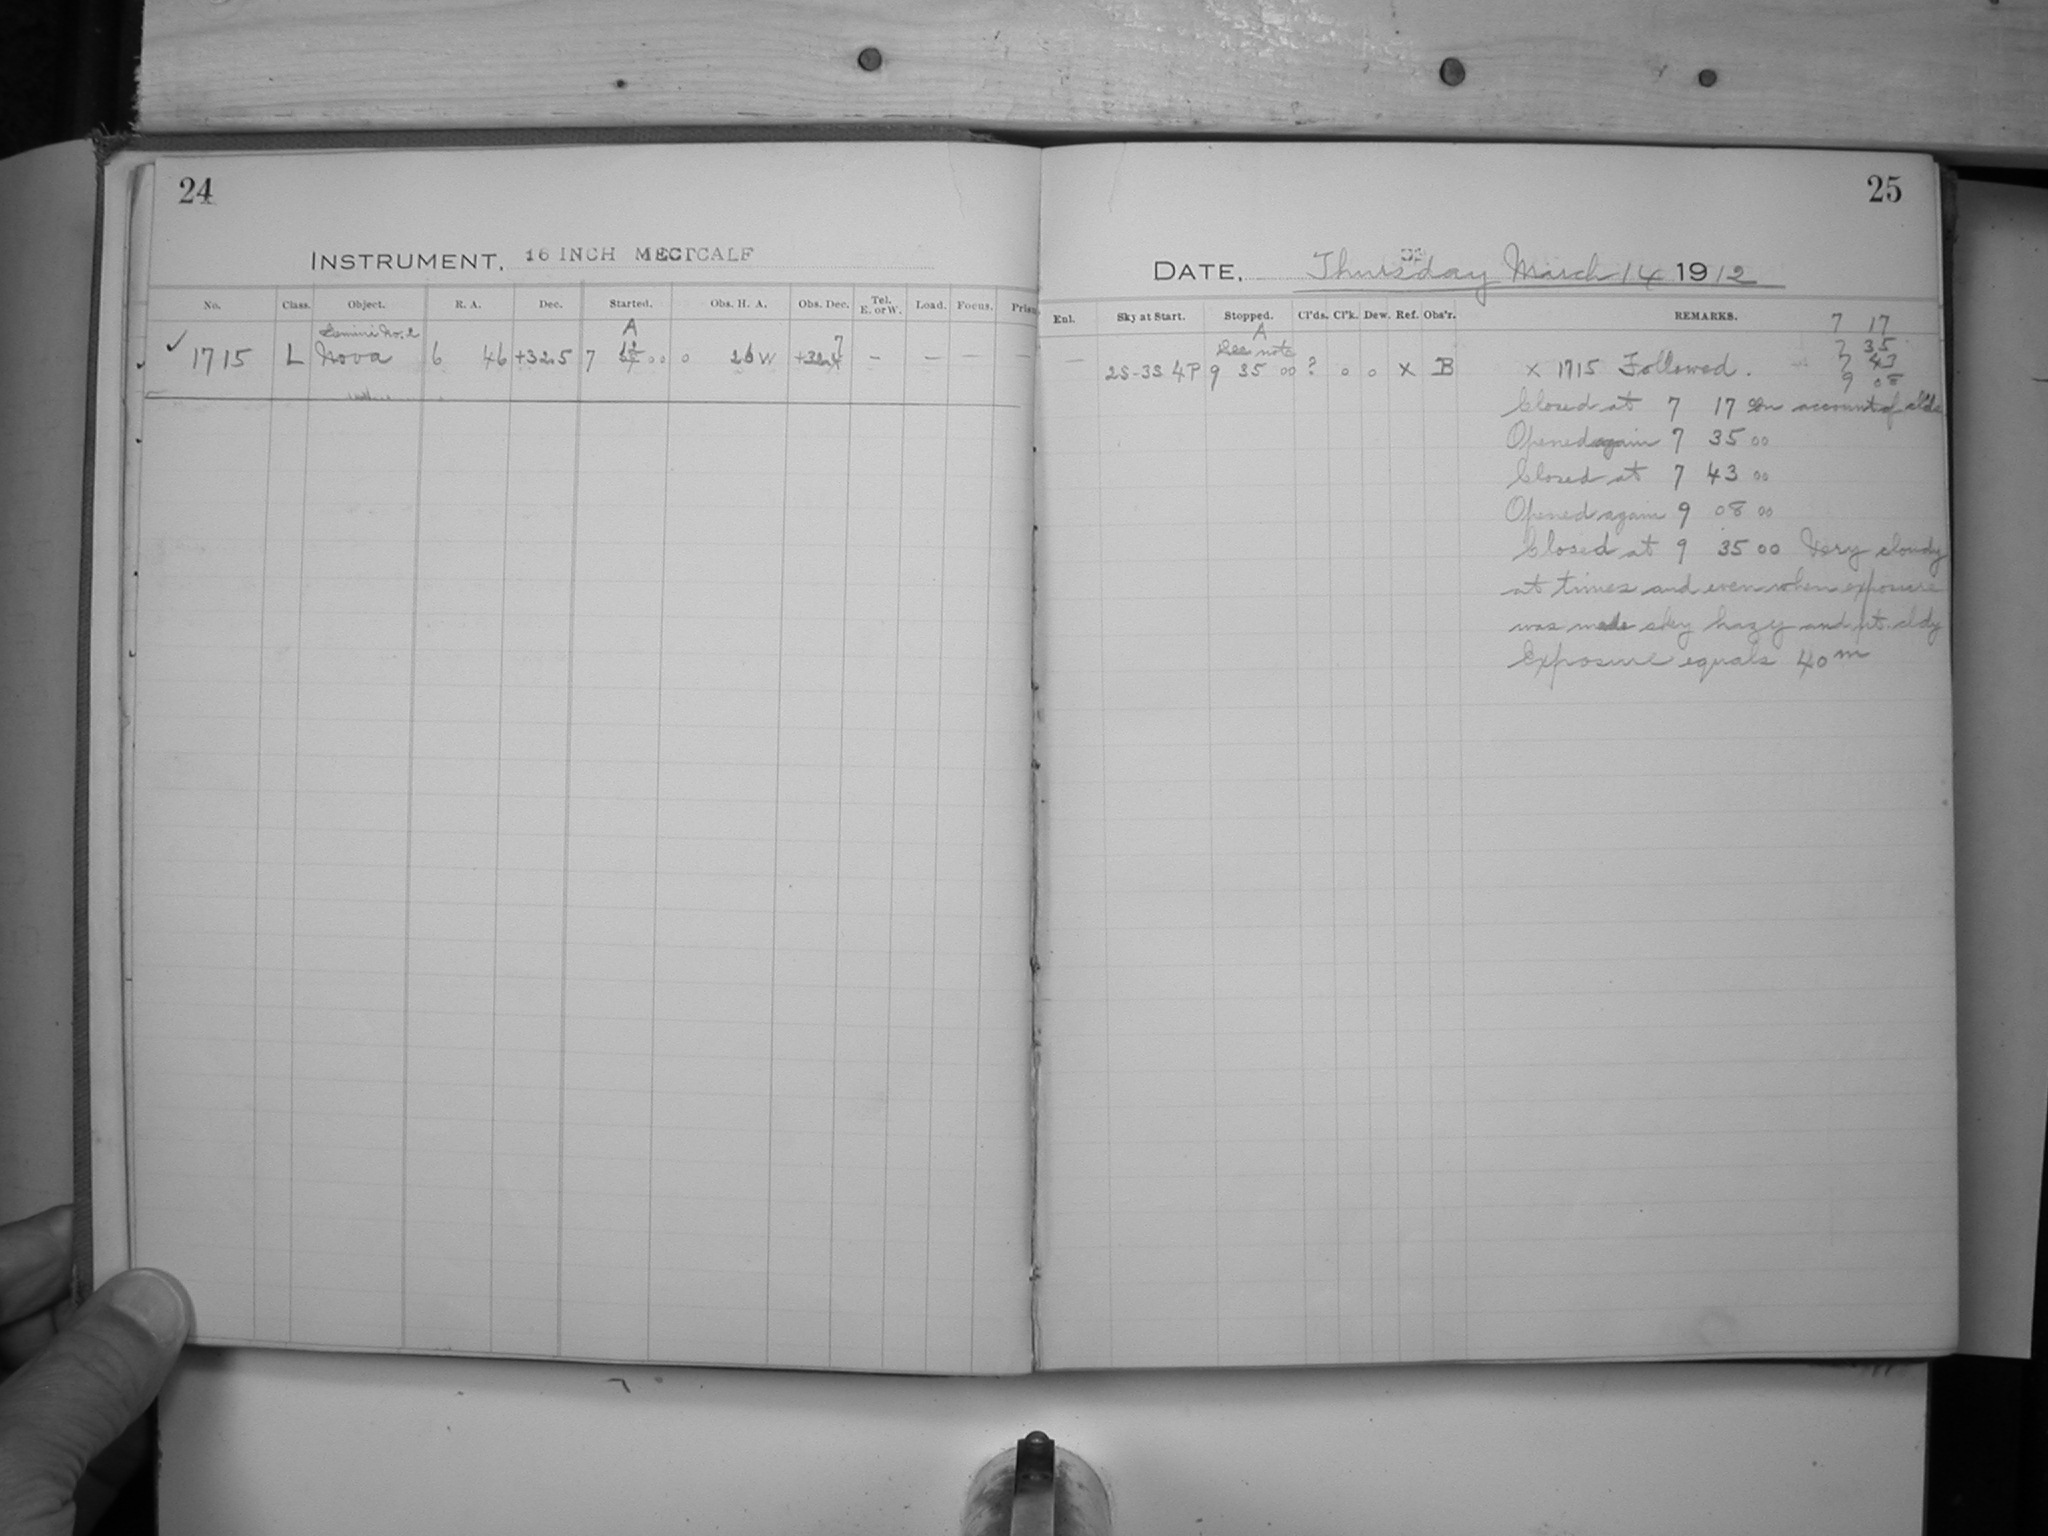 24
INSTRUMENT, 16 INCH METCALF
No. Class. Object. R. A. Dec. Started. Obs. H. A. Obs. Dec. Tel. E. or W. Load. Focus. Prism
Gemini No. 2 A
✓ 1715 L Nova 6 46 +32.5 7 12 00 0 26 W – – – –
25
DATE, Thursday March 14 1912
Enl. Sky at Start. Stopped. Cl'ds. Cl'k. Dew. Ref. Obs'r. REMARKS.
A
See note
– 2S-3S 4P 9 35 00 ? 0 0 X B
7 17
7 35
7 43
9 08
x 1715 Followed.
Closed at 7 17 on account of clds
Opened again 7 35 00
Closed at 7 43 00
Opened again 9 08 00
Closed at 9 35 00 Very cloudy
at times and even when exposure
was made sky hazy and pt. cldy
Exposure equals 40 m